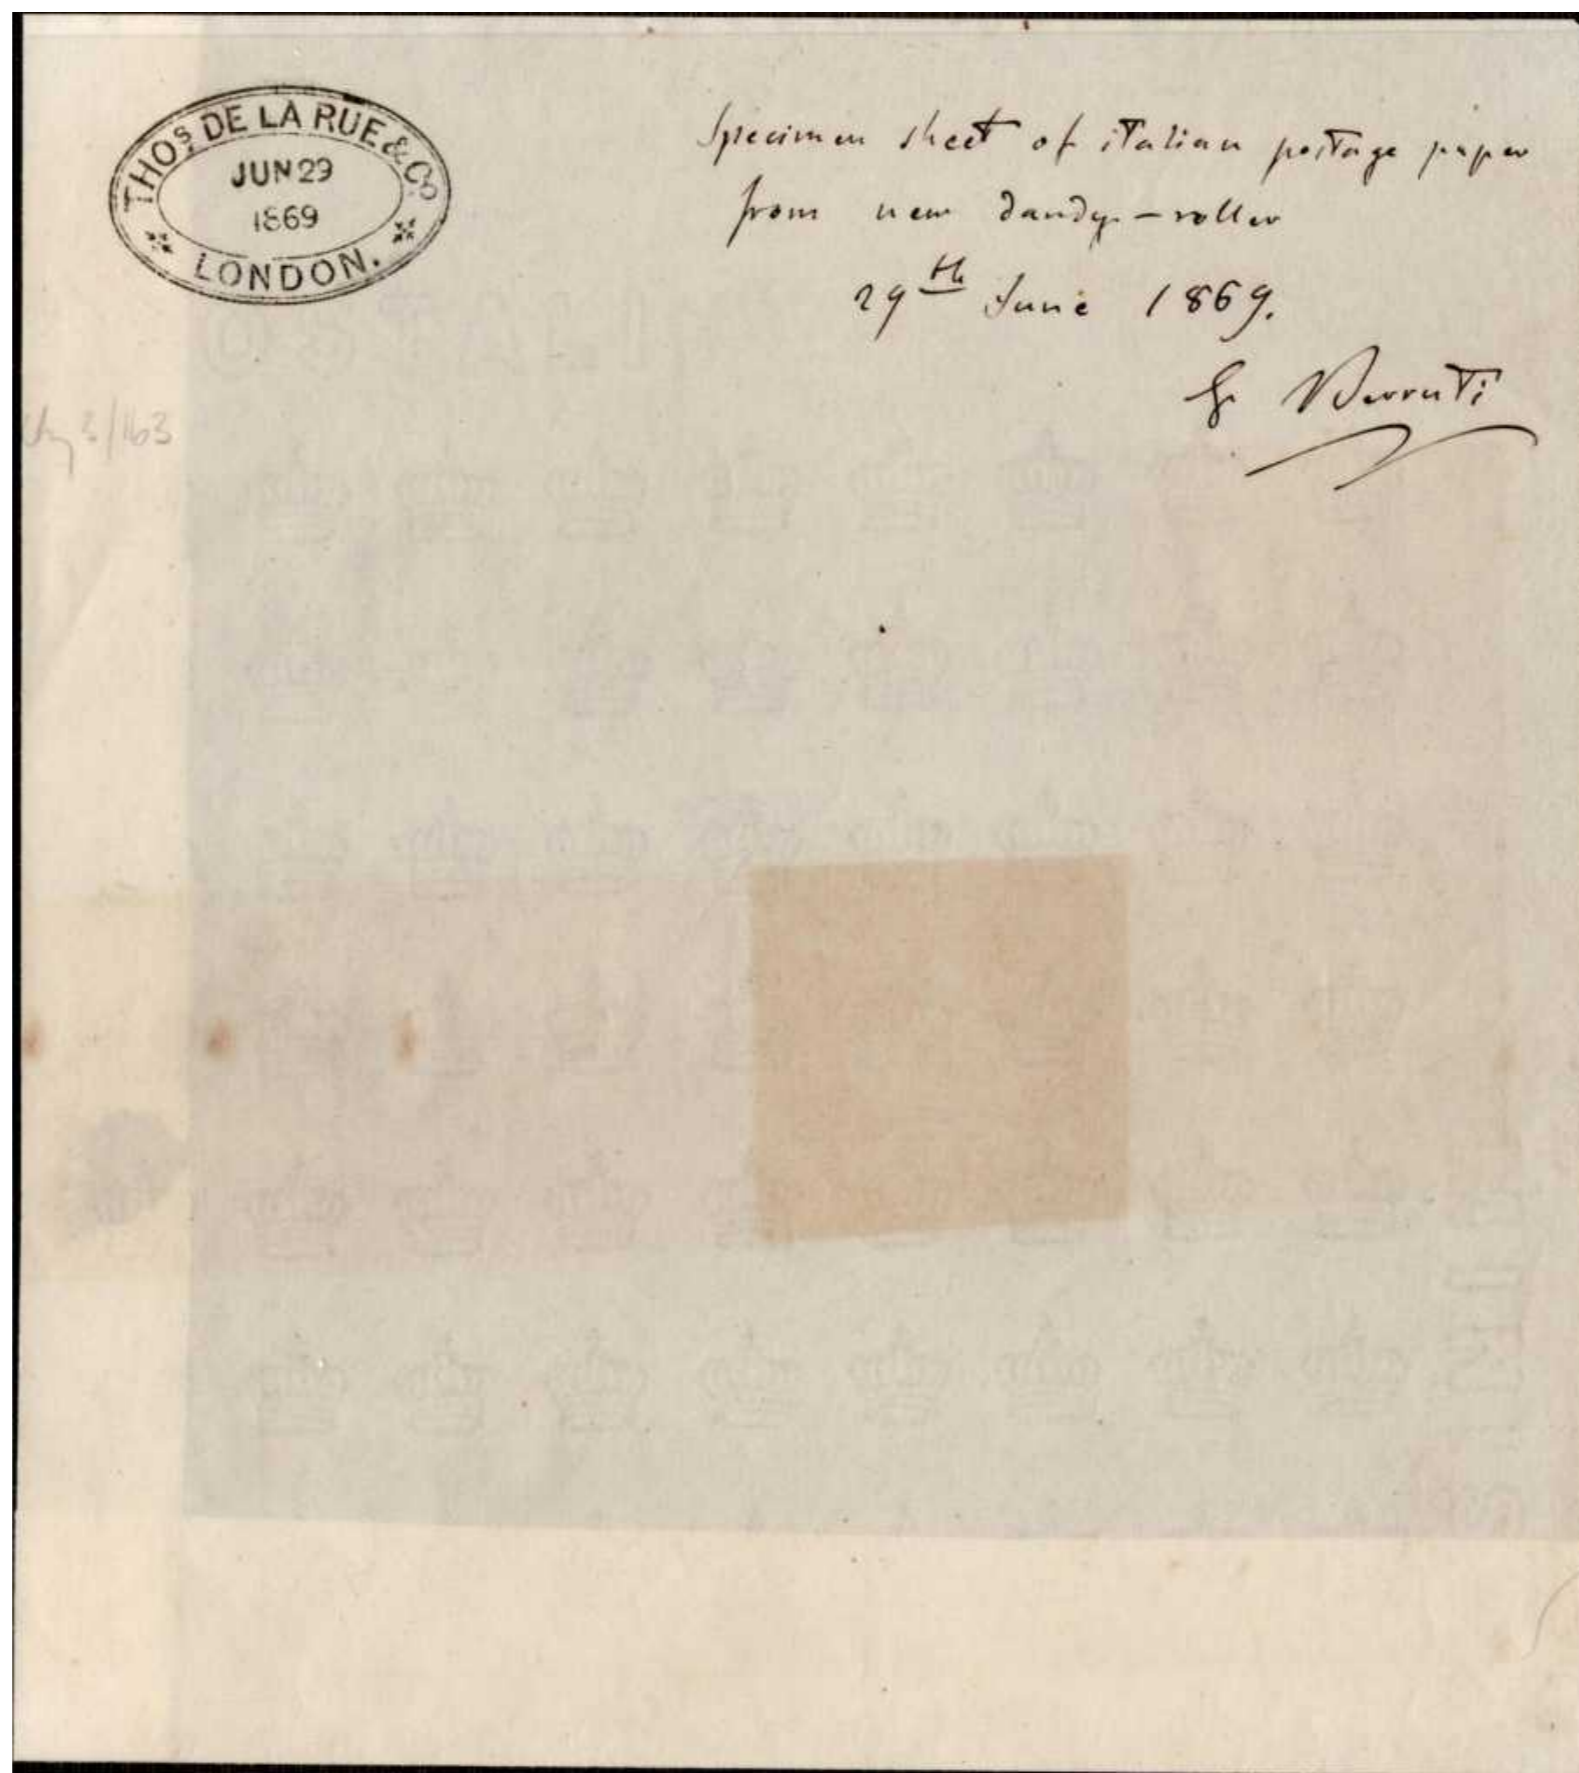 THOS DE LA RUE & CO
JUN 29
1869
LONDON.
Specimen sheet of italian postage paper
from new dandy-roller
29th June 1869.
G Verruti
3/163